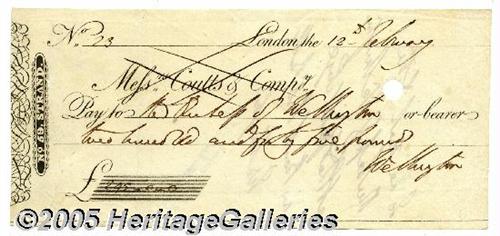 No. 23 London the 12th February
Messrs. Coutts & Compy.
Pay to the Duchess of Wellington or bearer
two hundred and forty five pounds
Wellington
£
No. 59 STRAND
© 2005 HeritageGalleries.com